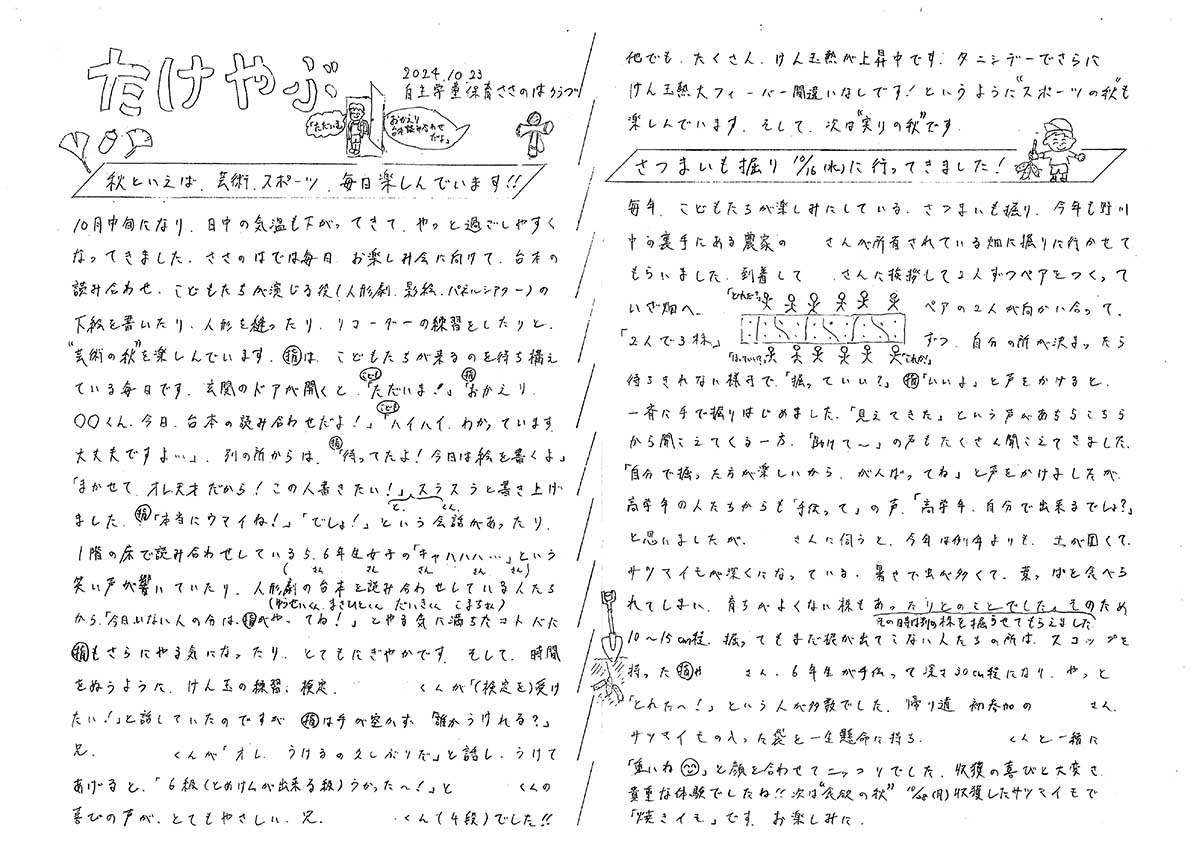 たけやぶ
2024.10.23
自主学童保育ささのはうらつづ
「ただいま」
「おかえり
台本読み合わせ
だよ」
秋といえば、芸術、スポーツ、毎日楽しんでいます!!
10月中旬になり、日中の気温も下がってきて、やっと過ごしやすく
なってきました。ささのはでは毎日、お楽しみ会に向けて、台本の
読み合わせ、こどもたちが演じる役(人形劇、影絵、パネルシアター)の
下絵を書いたり、人形を縫ったり、リコーダーの練習をしたりと、
"芸術の秋"を楽しんでいます。指は、こどもたちが来るのを待ち構え
ている毎日です。玄関のドアが開くと、こども「ただいま!」指「おかえり、
〇〇くん、今日、台本の読み合わせだよ!」こども「ハイハイ、わかっています、
大丈夫ですよ…」、別の所からは、指「待ってたよ!今日は絵を書くよ」
「まかせて、オレ天才だから!この人書きたい!」、スラスラと書き上げ
と、 くん
ました。指「本当にウマイね!」「でしょ!」という会話があったり、
1階の床で読み合わせしている5、6年生女子の「キャハハハ…」という
( さん さん さん さん さん)
笑い声が響いていたり、人形劇の台本を読み合わせしている人たち
(ゆうせいくん、まさひとくん だいきくん こまちね)
から「今日いない人の分は、指がやってね!」とやる気に満ちたコトバに
指もさらにやる気になったり、とてもにぎやかです。そして、時間
をぬうように、けん玉の練習、検定。 くんが「(検定を)受け
たい!」と話していたのですが 指は手が空かず「誰かうけれる?」
兄。 くんが「オレ、うけるの久しぶりだ」と話し、うけて
あげると、「6級(とめけんが出来る級)うかった〜!」と くんの
喜びの声が、とてもやさしい、兄。 くん(4段)でした!!
他でも、たくさん、けん玉熱が上昇中です。タニシデーでさらに
けん玉熱大フィーバー間違いなしです!というように"スポーツの秋"も
楽しんでいます。そして、次は"実りの秋"です。
さつまいも掘り 10/16(水)に行ってきました!
毎年、こどもたちが楽しみにしている、さつまいも掘り。今年も野川
中の裏手にある農家の さんが所有されている畑に掘りに行かせて
もらいました。到着して、 さんに挨拶して2人ずつペアをつくって
いざ畑へ。 「とれた?」 ペアの2人が向かい合って、
「2人で3株」 ずつ、自分の所が決まったら
「ほっていい?」 「これか!」
待ちきれない様子で、「掘っていい?」指「いいよ」と声をかけると、
一斉に手で掘りはじめました。「見えてきた」という声があちらこちら
から聞こえてくる一方、「助けて〜」の声もたくさん聞こえてきました。
「自分で掘った方が楽しいから、がんばってね」と声をかけましたが、
高学年の人たちからも「手伝って」の声、「高学年、自分で出来るでしょ?」
と思いましたが、 さんに伺うと、今年は例年よりも、土が固くて、
サツマイモが深くになっている、暑さで虫が多くて、葉っぱを食べら
れてしまい、育ちがよくない株もあったりとのことでした。そのため
その時は別の株を掘らせてもらえました
10〜15cm程、掘ってもまだ根が出てこない人たちの所は、スコップを
持った指や さん、6年生が手伝って深さ30cm程になり、やっと
「とれた〜!」という人が多数でした。帰り道 初参加の さん、
サツマイモの入った袋を一生懸命に持ち、 くんと一緒に
「重いね」と顔を合わせてニッコリでした。収穫の喜びと大変さ、
貴重な体験でしたね!!次は"食欲の秋" 10/28(月)収穫したサツマイモで
「焼きイモ」です。お楽しみに。